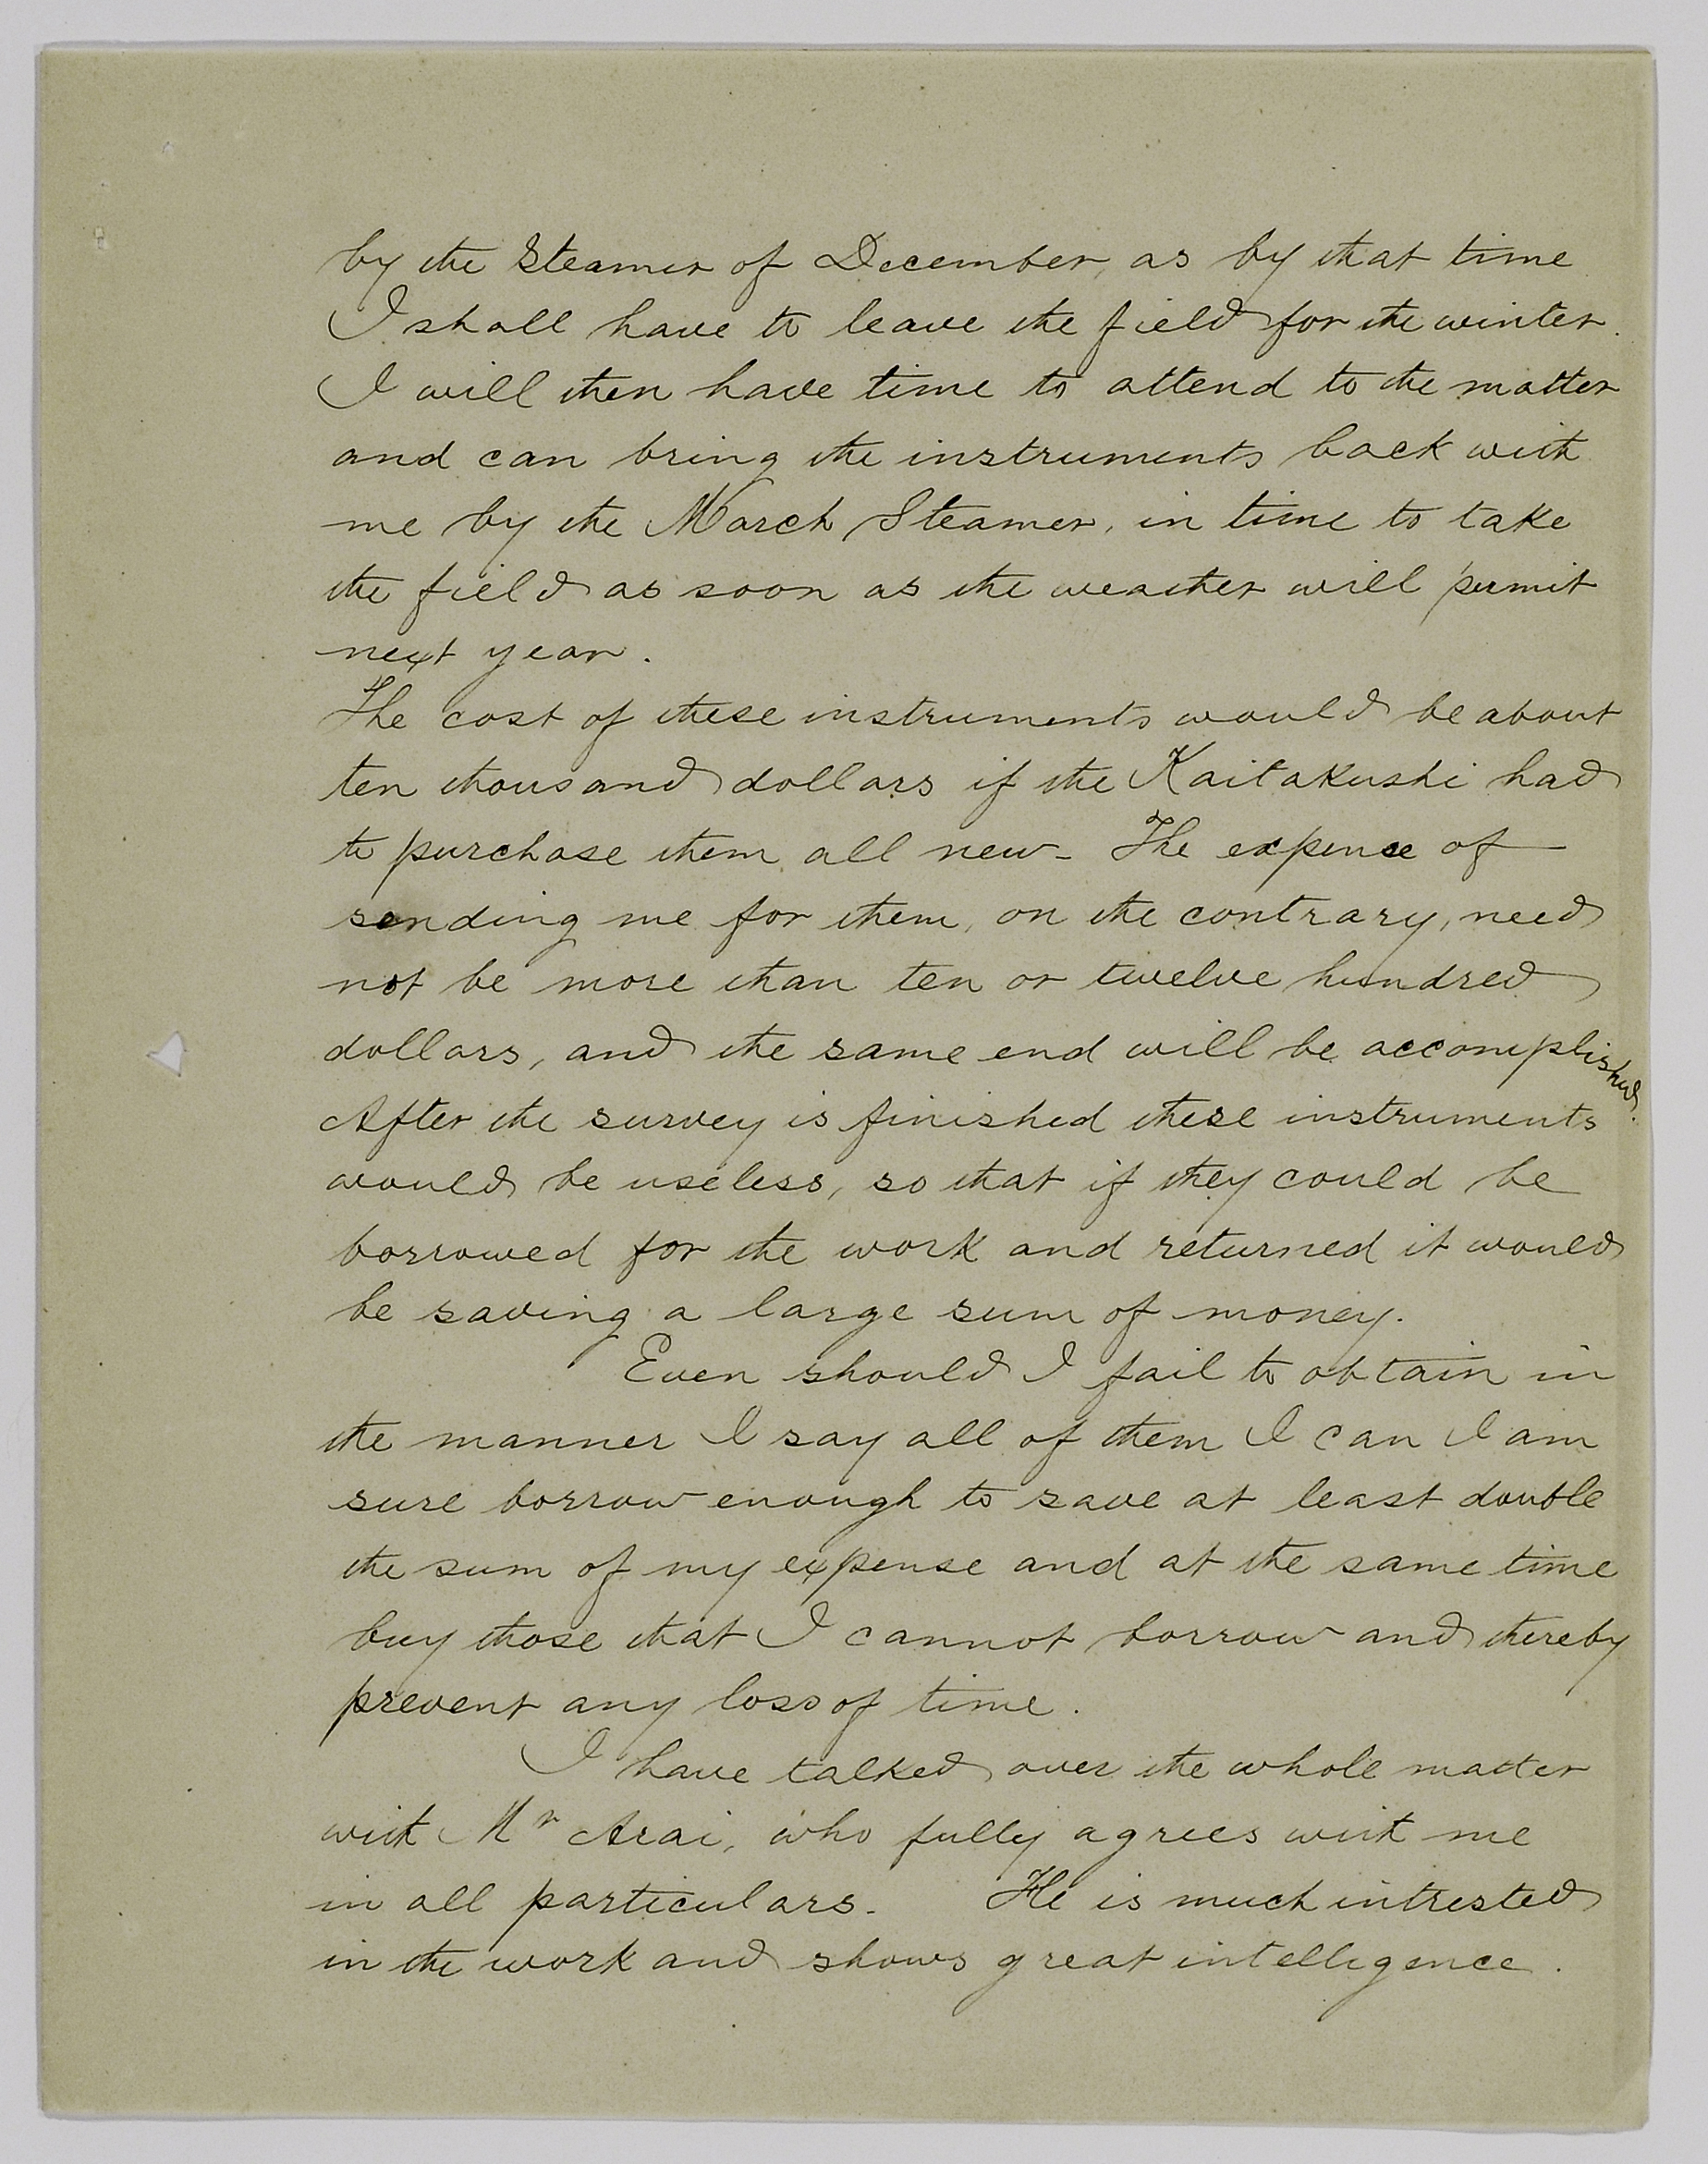 by the Steamer of December, as by that time
I shall have to leave the field for the winter.
I will then have time to attend to the matter
and can bring the instruments back with
me by the March Steamer, in time to take
the field as soon as the weather will permit
next year.
The cost of these instruments would be about
ten thousand dollars if the Kaitakushi had
to purchase them all new - The expence of
sending me for them, on the contrary, need
not be more than ten or twelve hundred
dollars, and the same end will be accomplished.
After the survey is finished these instruments
would be useless, so that if they could be
borrowed for the work and returned it would
be saving a large sum of money.
Even should I fail to obtain in
the manner I say all of them I can I am
sure borrow enough to save at least double
the sum of my expense and at the same time
buy those that I cannot borrow and thereby
prevent any loss of time.
I have talked over the whole matter
with Mr Arai, who fully agrees with me
in all particulars. He is much intrested
in the work and shows great intelligence.